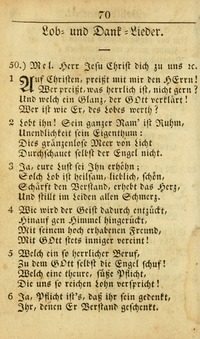 70
Lob- und Dank-Lieder.
50.) Mel. Herr Jesu Christ dich zu uns ꝛc.
1 Auf Christen, preißt mit mir den HErrn!
Wer preißt, was herrlich ist, nicht gern?
Und welch ein Glanz, der GOtt verklärt!
Wer ist wie Er, des Lobes werth?
2 Lobt ihn! Sein ganzer Nam' ist Ruhm,
Unendlichkeit sein Eigenthum:
Dies gränzenlose Meer von Licht
Durchschauet selbst der Engel nicht.
3 Ja, eure Lust sei Ihn erhöhn;
Solch Lob ist heilsam, lieblich, schön,
Schärft den Verstand, erhebt das Herz,
Und stillt im Leiden allen Schmerz.
4 Wie wird der Geist dadurch entzückt,
Hinauf gen Himmel hingerückt,
Mit seinem hoch erhabenen Freund,
Mit GOtt stets inniger vereint!
5 Welch ein so herrlicher Beruf,
Zu dem GOtt selbst die Engel schuf!
Welch eine theure, süße Pflicht,
Die uns so reichen Lohn verspricht!
6 Ja, Pflicht ist's, daß ihr sein gedenkt,
Ihr, denen Er Verstand geschenkt.